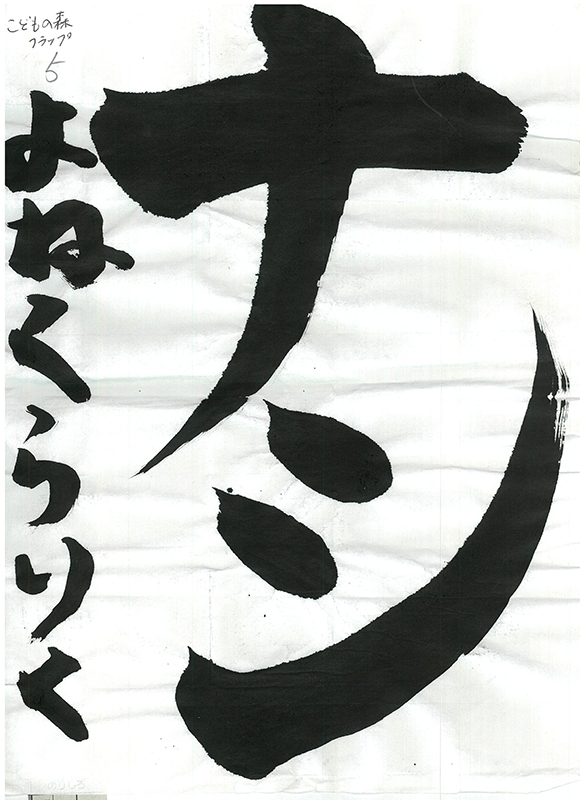 ナシ
よねくらりく
こどもの森
クラップ
5